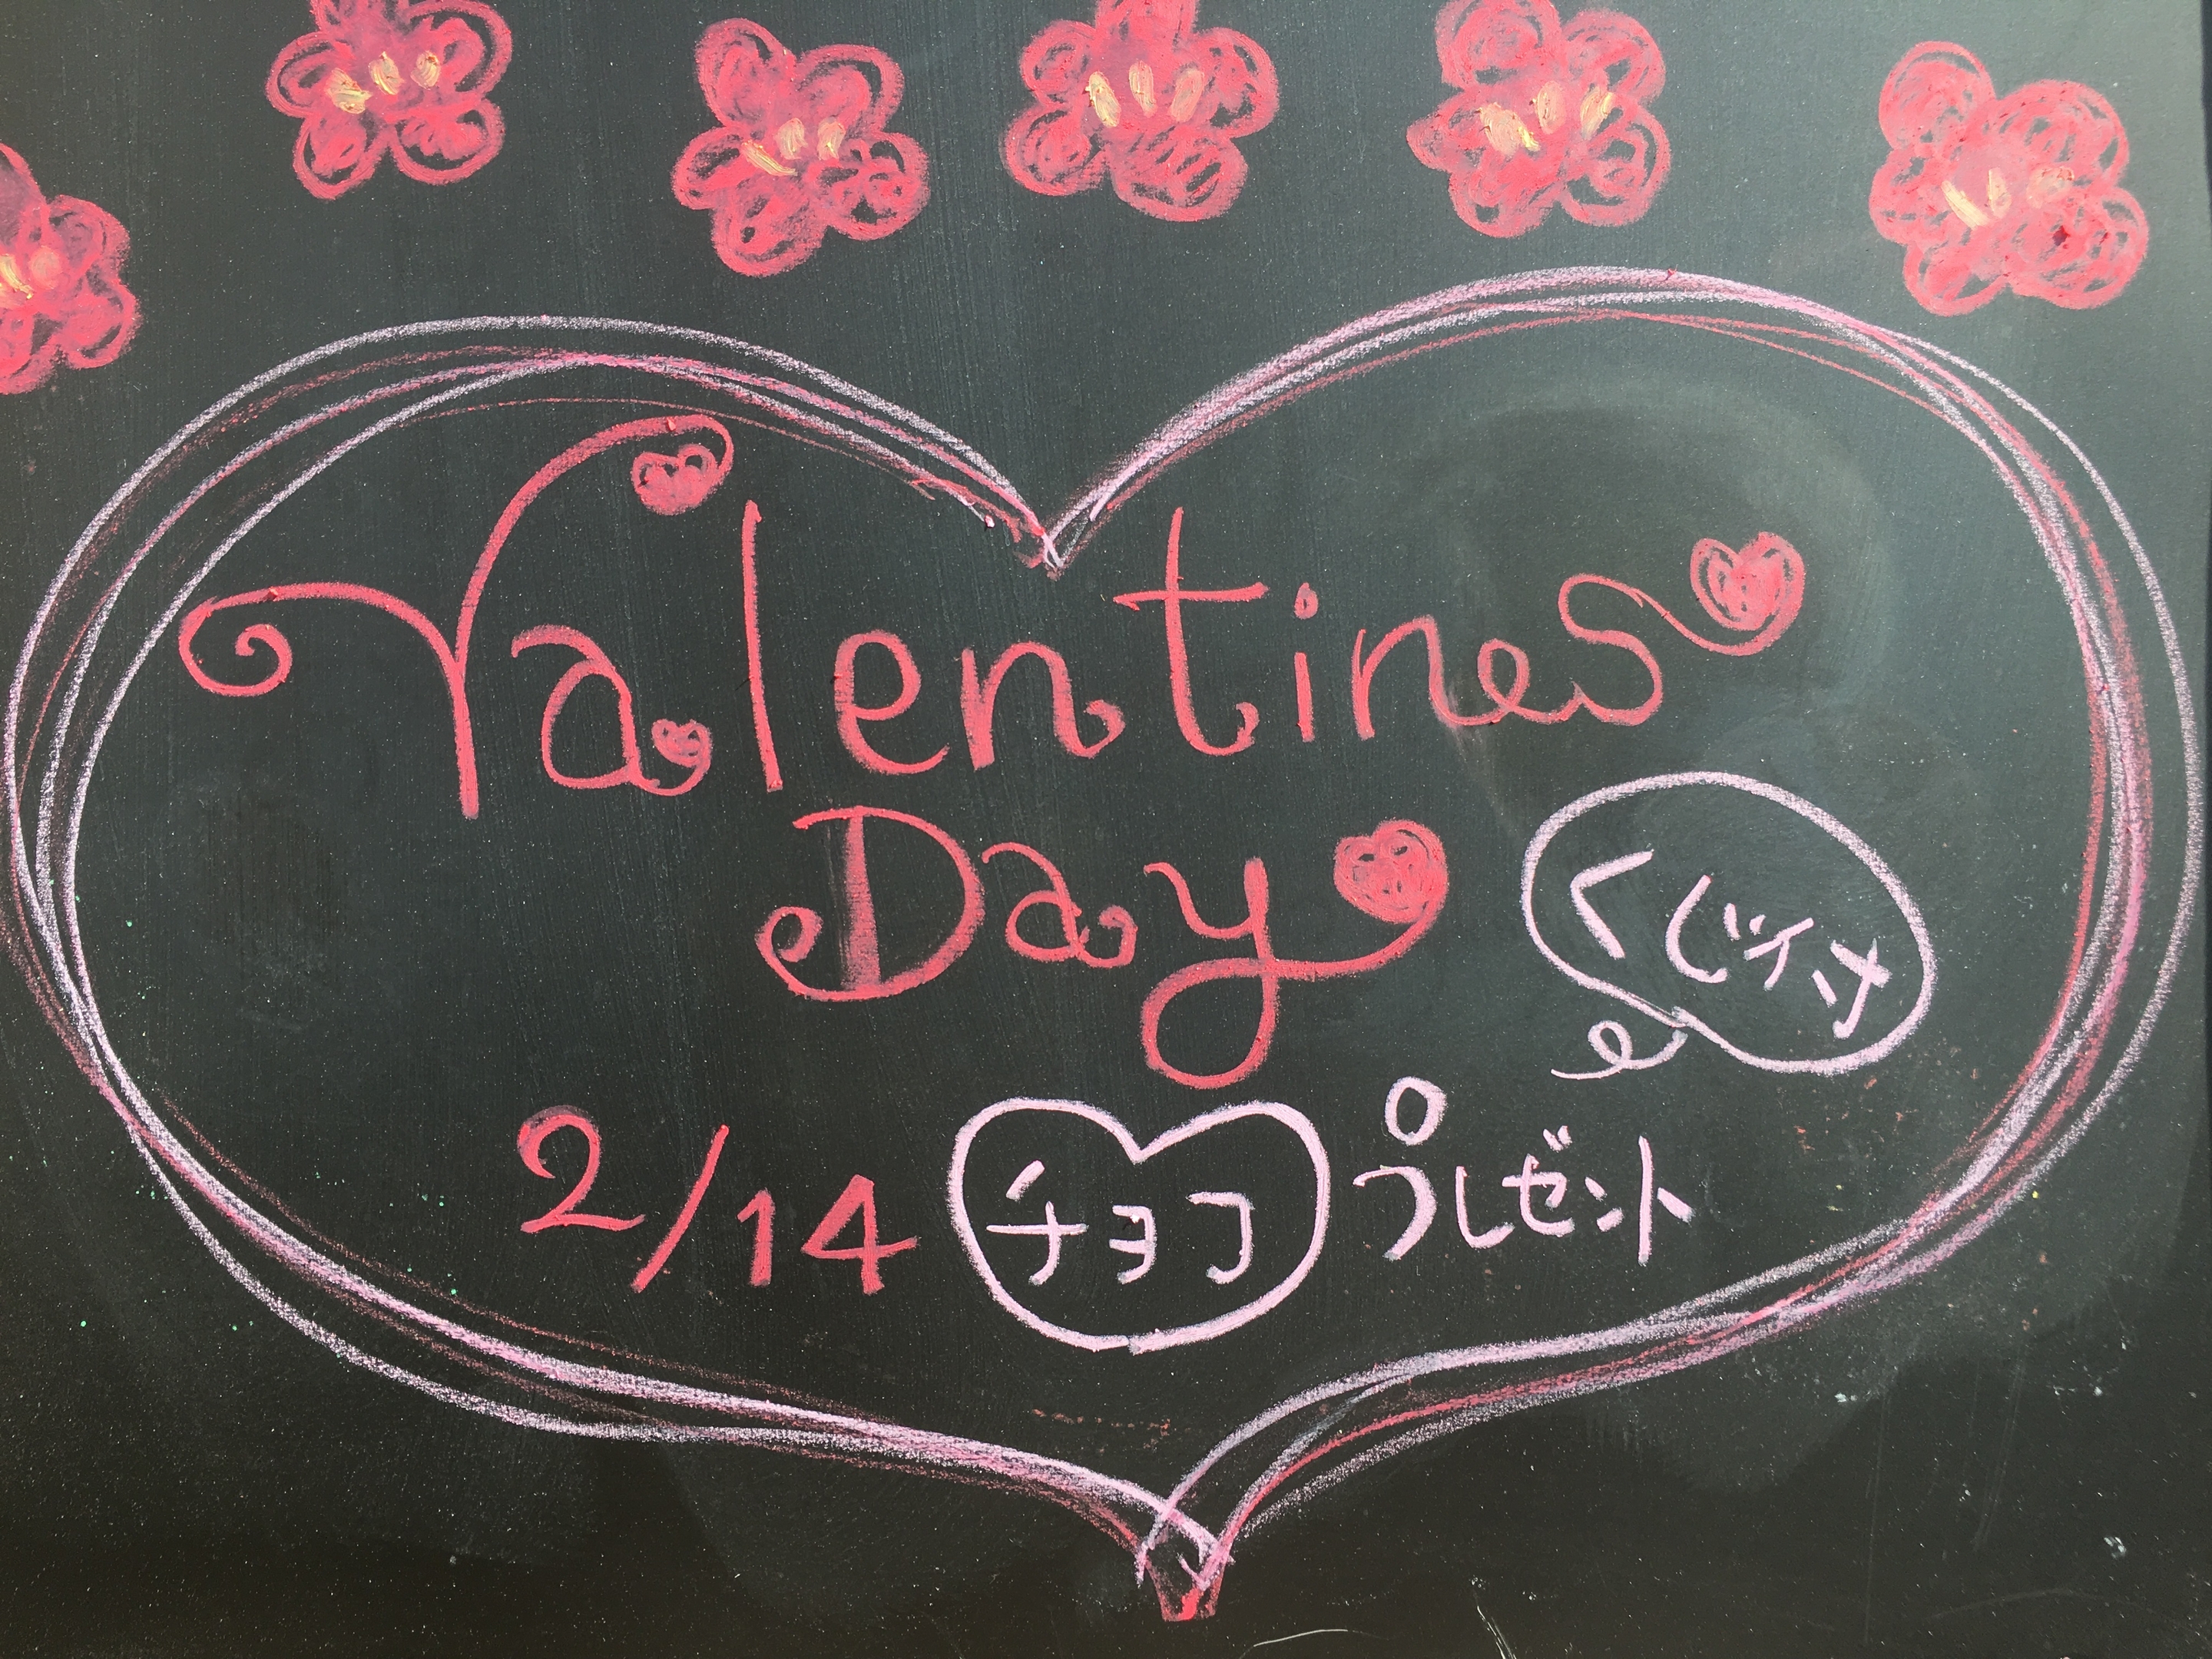 Valentines
Day
くじ付
2/14 チョコ プレゼント